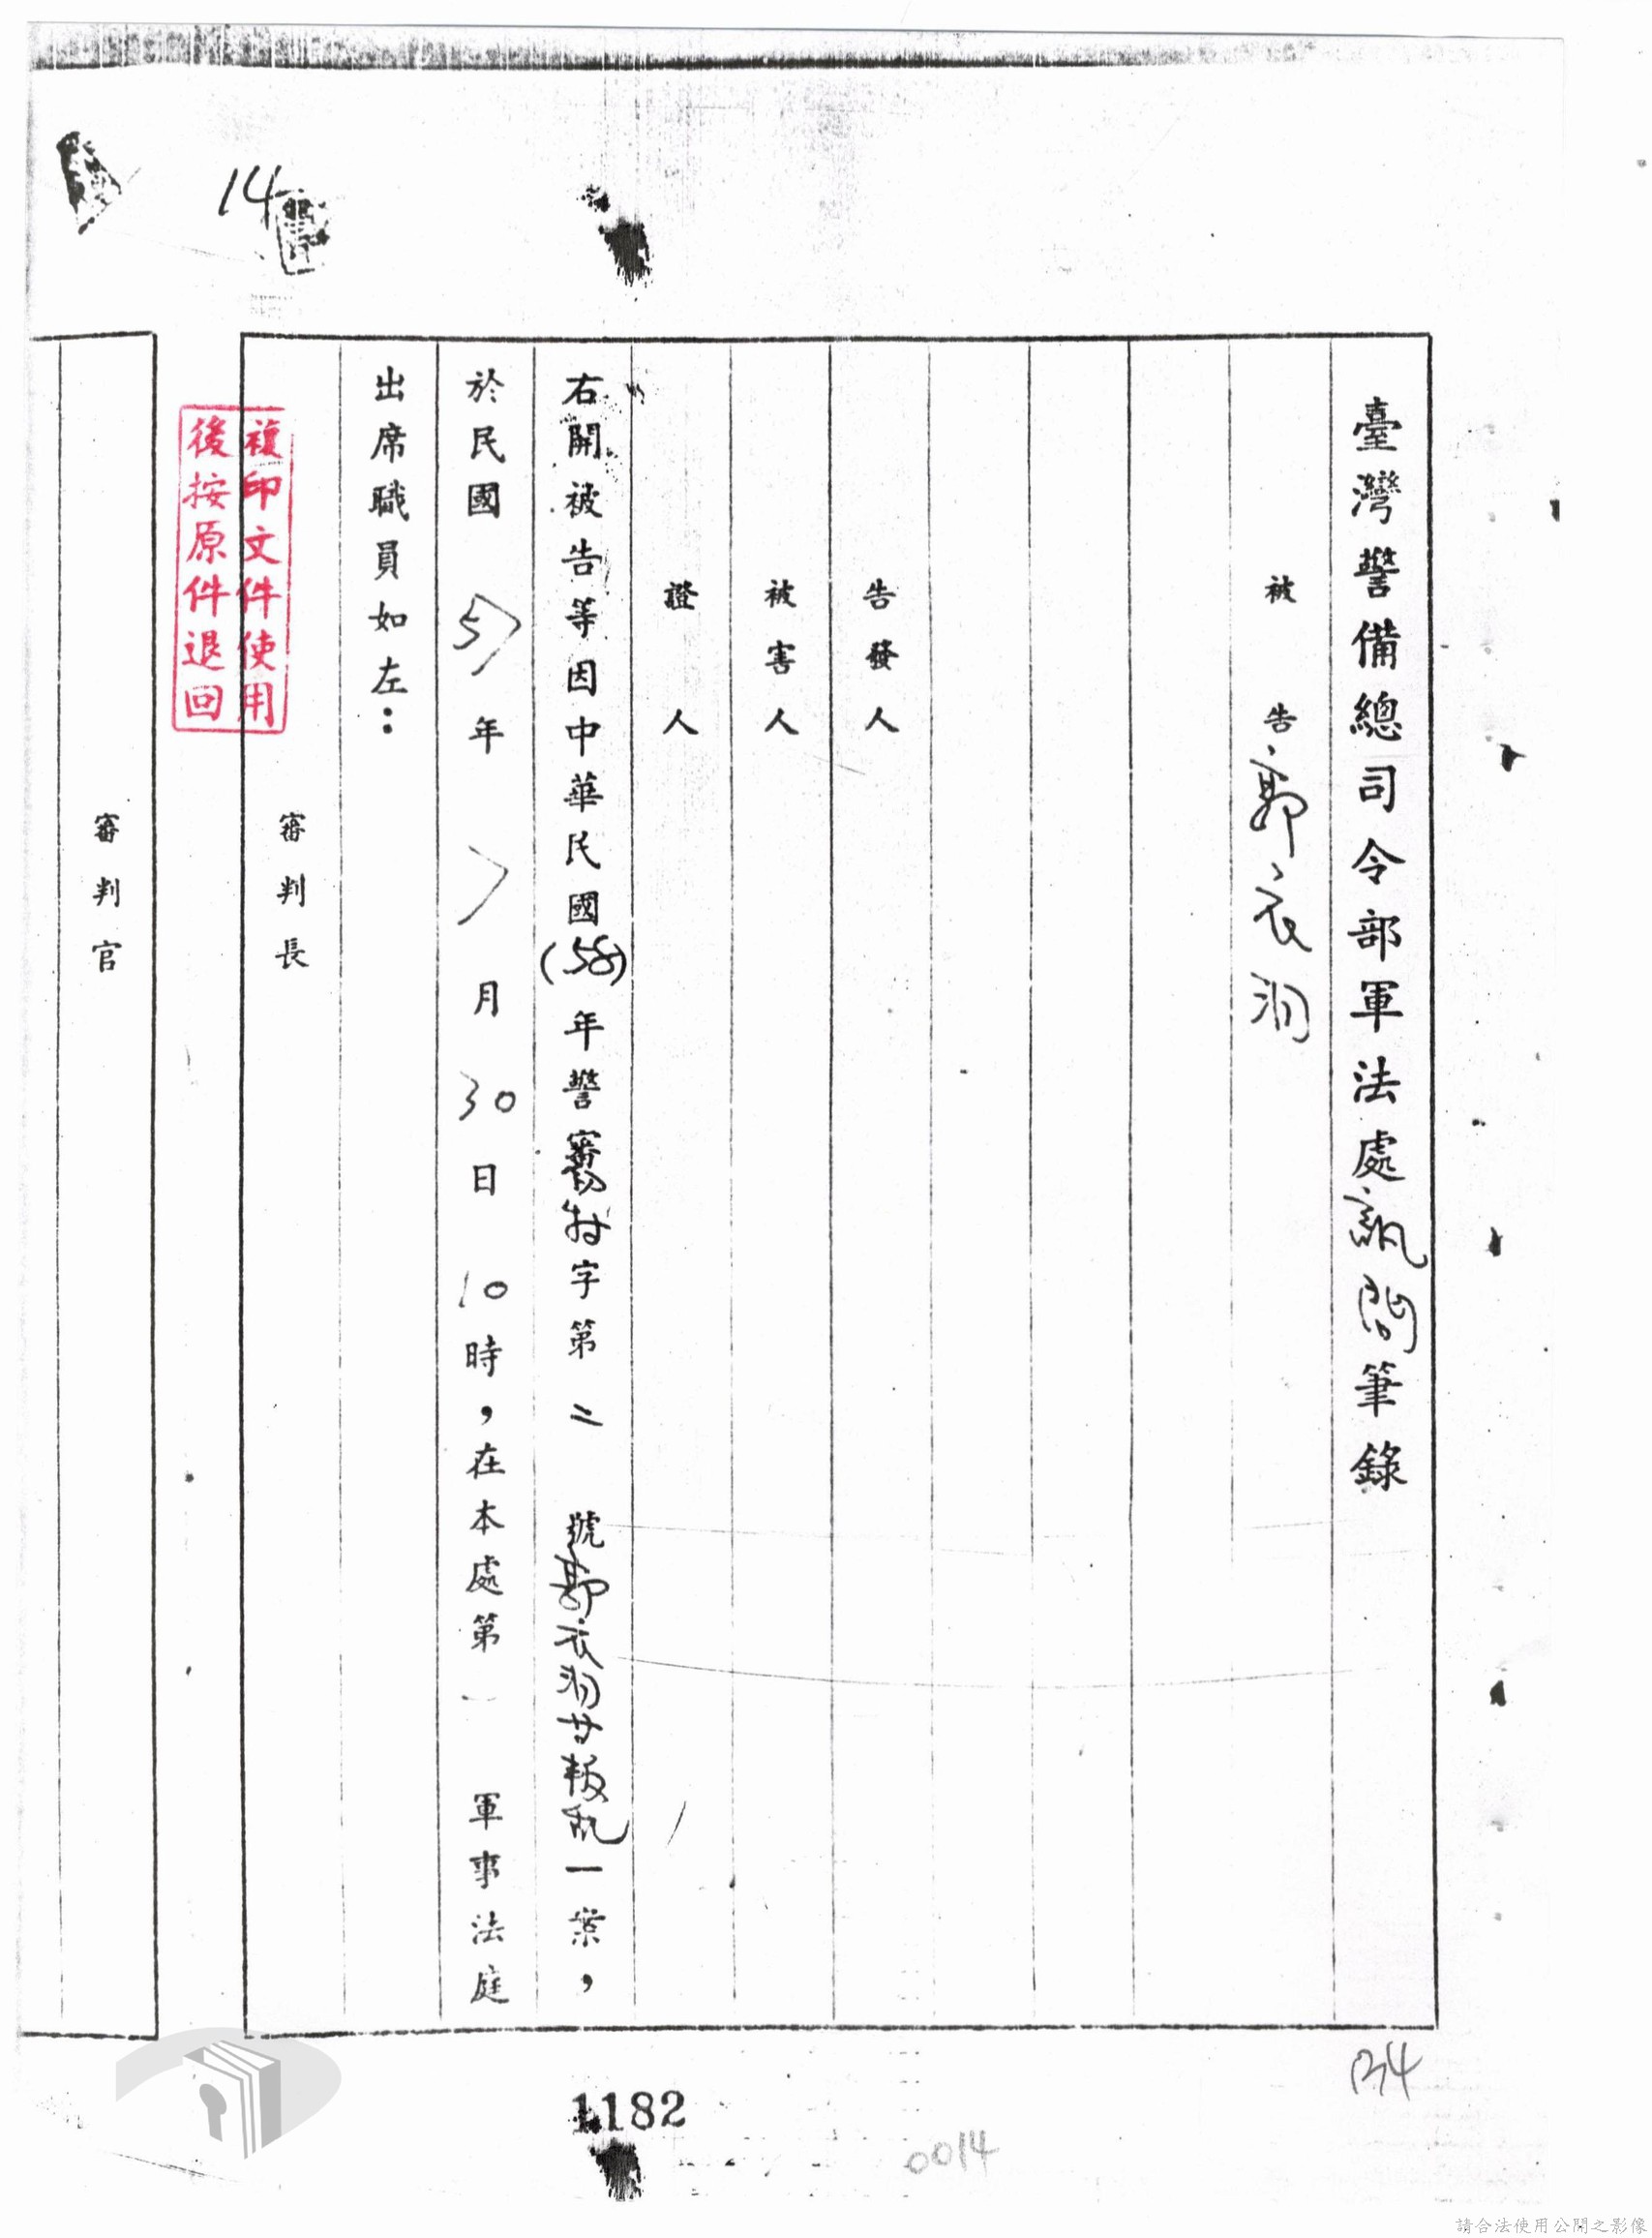 臺灣警備總司令部軍法處訊問筆錄
被告 郭衣洞
告發人
被害人
證人
右開被告等因中華民國(58)年警審特字第二號郭衣洞等叛亂一案,
於民國57年7月30日10時,在本處第一軍事法庭
出席職員如左:
審判長
審判官
複印文件使用
後按原件退回
14
134
1182
0014
請合法使用公開之影像